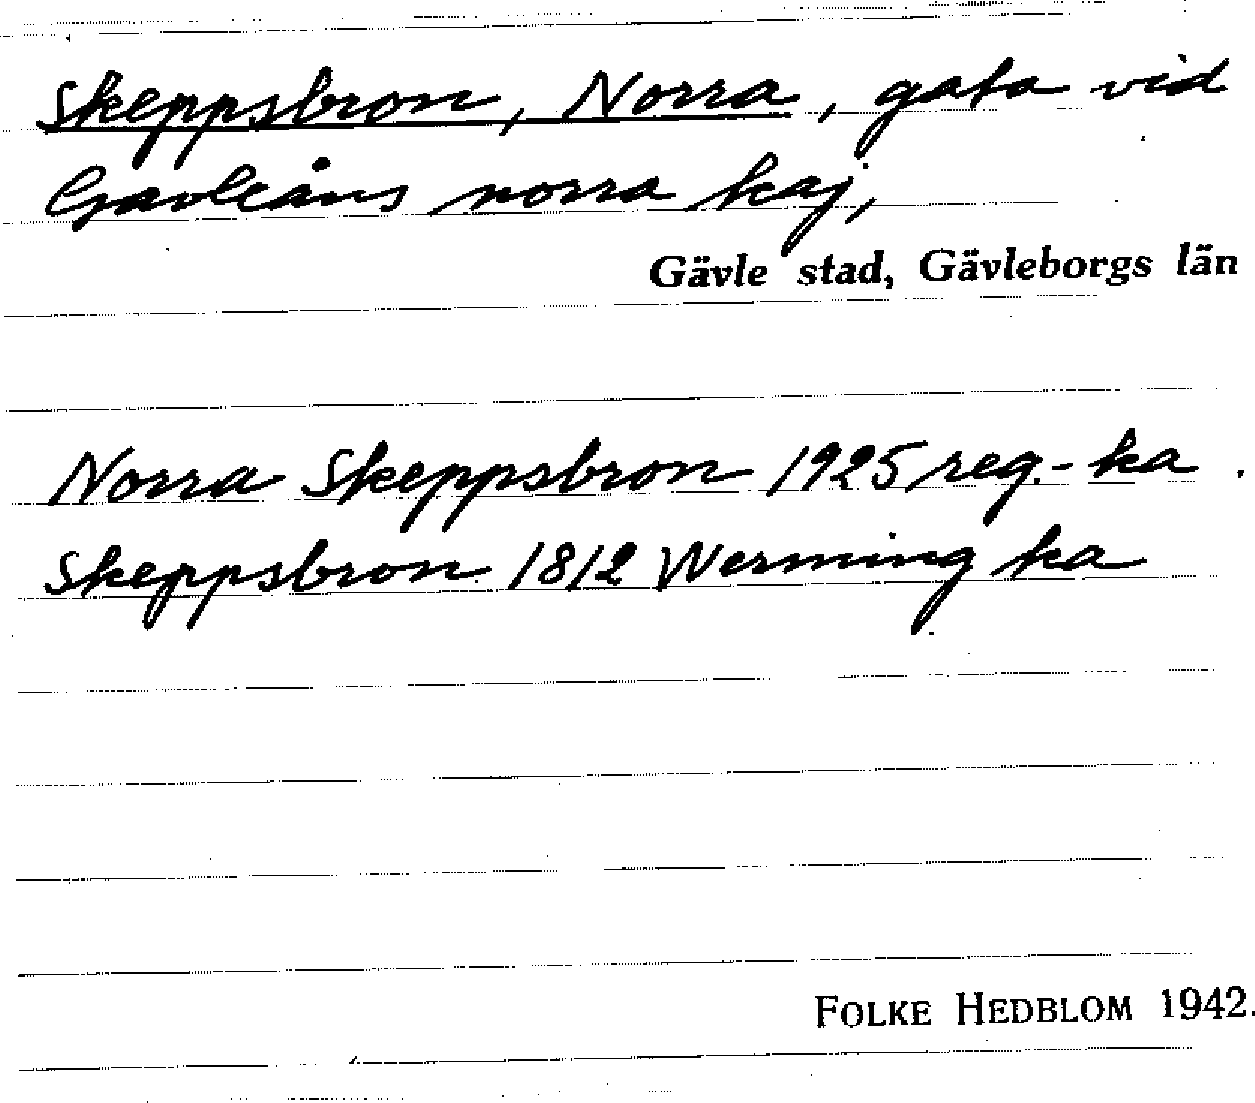 Skeppsbron, Norra, gata vid
Gavleåns norra kaj,
Gävle stad, Gävleborgs län
Norra Skeppsbron 1925 reg.-ka
Skeppsbron 1812 Werming ka
FOLKE HEDBLOM 1942.